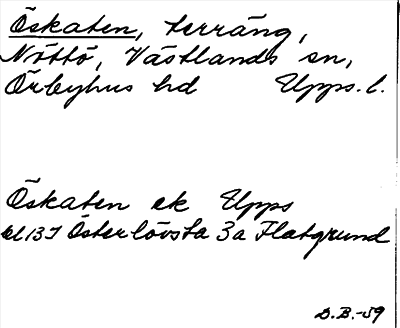 Öskaten, terräng,
Nöttö, Västlands sn,
Örbyhus hd Upps. l.
Öskaten ek Upps
bl 137 Österlövsta 3a Flatgrund
D.B.-59